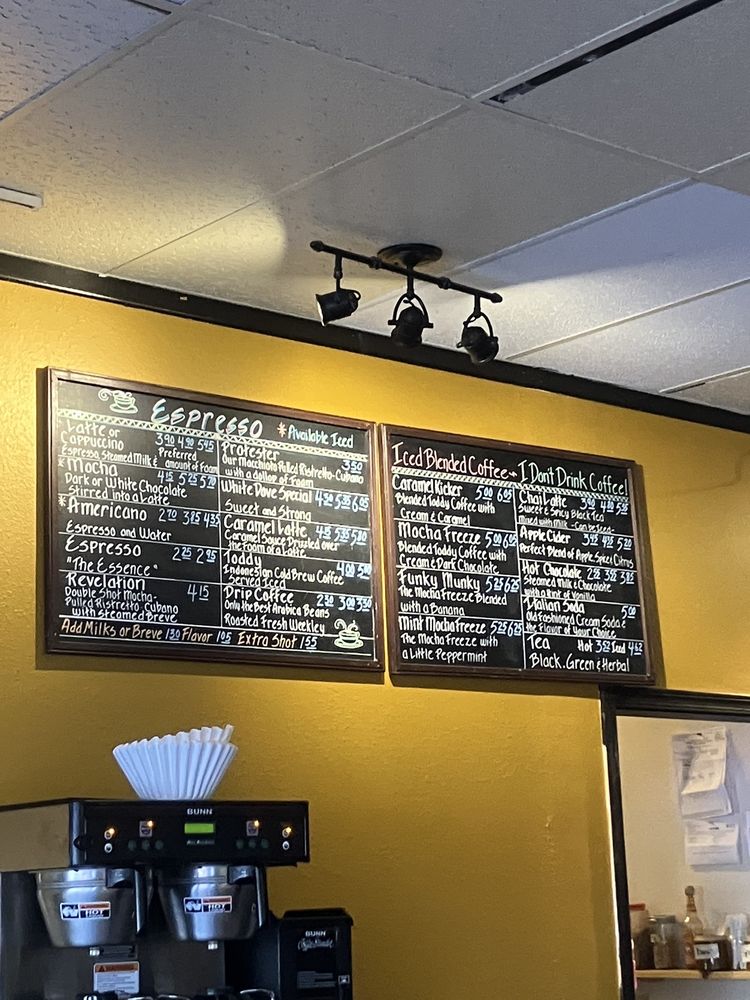 Espresso
*Available Iced
Latte or
Cappuccino 3.90 4.90 5.45
Espresso, Steamed Milk & Preferred amount of Foam
*Mocha 4.15 5.25 5.70
Dark or White Chocolate
Stirred into a Latte
*Americano 2.70 3.85 4.35
Espresso and Water
Espresso 2.25 2.95
"The Essence"
Revelation 4.15
Double Shot Mocha.
Pulled Ristretto, Cubano
with Steamed Breve
Protester
Our Macchiato Pulled Ristretto-Cubano
with a dollop of Foam 3.50
White Dove Special
Sweet and Strong
Caramel Latte 4.45 5.35 5.80
Caramel Sauce Drizzled over
the Foam of a Latte
Toddy
Indonesian Cold Brew Coffee
Served Iced
Drip Coffee
Only the Best Arabica Beans
Roasted Fresh Weekly
Add Milks or Breve 1.30 Flavor 1.05 Extra Shot 1.55
Iced Blended Coffee ~ I Don't Drink Coffee!
Caramel Kicker 5.00 6.05
Blended Toddy Coffee with
Cream & Caramel
Mocha Freeze 5.00 6.05
Blended Toddy Coffee with
Cream & Dark Chocolate
Funky Munky 5.25 6.25
The Mocha Freeze Blended
with a Banana
Mint Mocha Freeze 5.25 6.25
The Mocha Freeze with
a Little Peppermint
Chai Latte
Sweet & Spicy Black Tea
Mixed with Milk - Can be Iced
Apple Cider
Perfect Blend of Apple, Spice & Citrus
Hot Chocolate
Steamed Milk & Chocolate
with a hint of Vanilla
Italian Soda 5.00
Old Fashioned Cream Soda &
the Flavor of Your Choice
Tea Hot Iced
Black, Green & Herbal
BUNN
HOT
HOT
WARNING
BUNN